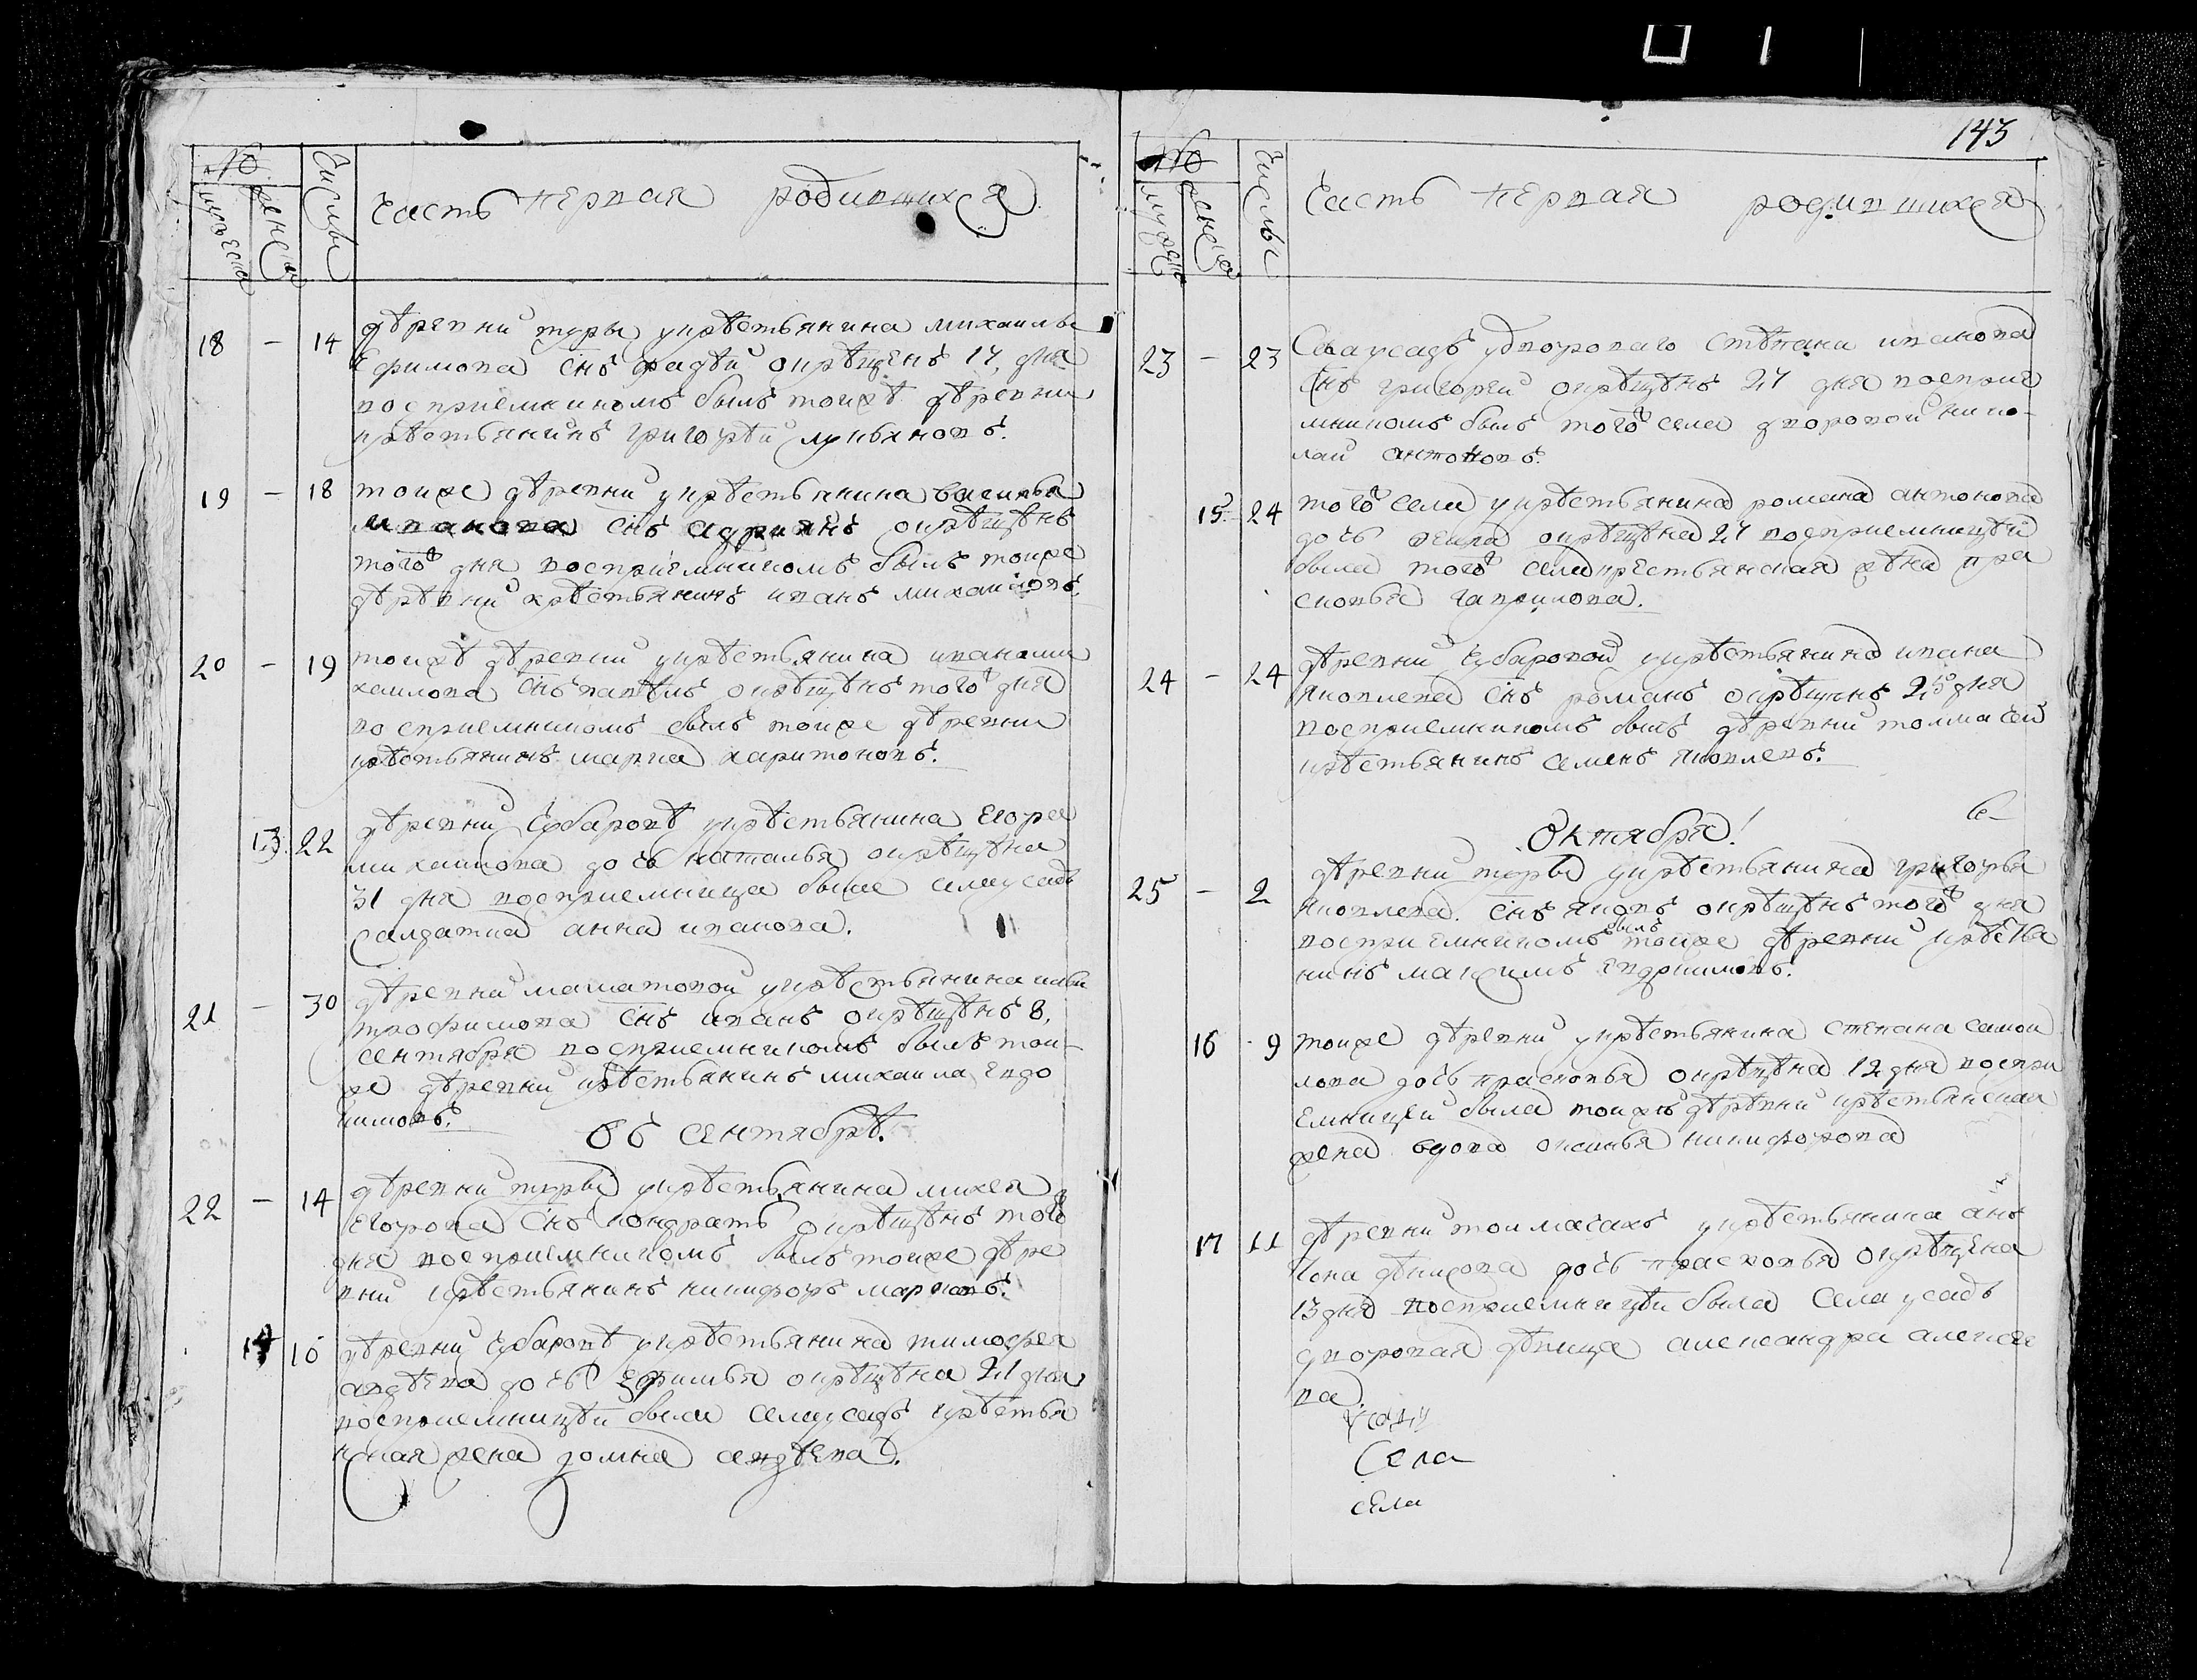 №
мужеска
женска
Числы
часть первая родившихся
18 – 14 дѣревни туры укрѣстьянина михаилы
Ефимова Снъ фадѣй окрѣщенъ 17, дня
восприемникомъ былъ тоижѣ дѣревни
крѣстьянинъ григорѣй лукьяновъ.
19 – 18 тоиже дѣревни укрѣстьянина василья
иванова Снъ адриянъ окрѣщѣнъ
того дня восприемникомъ былъ тоиже
дѣрѣвни крѣстьянинъ иванъ михаиловъ.
20 – 19 тоижѣ дѣревни укрѣстьянина ивана ми
хаилова Снъ павѣлъ окрѣщѣнъ того дня
восприемникомъ былъ тоиже дѣревни
крѣстьянинъ марка харитоновъ.
13. 22 дѣревни Губаровѣ укрѣстьянина Егора
михаилова дочь наталья окрѣщѣна
31 дня восприемница была села усадъ
салдатка анна иванова.
21 – 30 дѣревни машатовой укрѣстьянина ильи
трофимова Снъ иванъ окрѣщѣнъ 8,
сентября восприемникомъ былъ тои-
же дѣревни крѣстьянинъ михаила евдо
кимовъ.
Въ сентябрѣ.
22 – 14 дѣревни туры укрѣстьянина михея
Егорова Снъ кондрать окрѣщѣнъ того
дня восприемникомъ былъ тоиже дѣре
вни крѣстьянинъ никифоръ марковъ.
14 10 дѣревни Губаровѣ укрѣстьянина тимофея
авдѣева дочь Ефимья окрѣщѣна 21 дня,
восприемницѣй была села усадъ крѣстья
нская жена домна авдѣева.
143
№
мужеска
женска
Числы
Часть первая родившихся
23 – 23 Села усадъ удвороваго Стѣпана иванова
Снъ григорей окрѣщѣнъ 27 дня восприе
мникомъ былъ того села дворовой нико-
лай антоновъ.
15. 24 того села укрѣстьянина романа антонова
дочь фекла окрѣщѣна 27 восприемницѣй
была того села крестьянская жѣна пра
сковья гаврилова.
24 – 24 дѣревни Губаровой укрѣстьянина ивана
яковлева Снъ романъ окрѣщѣнъ 25 дня
восприемникомъ былъ дѣревни толмачей
крѣстьянинъ семенъ яковлевъ.
Октября!
25 – 2 дѣревни туры укрѣстьянина григорья
яковлева. Снъ яковъ окрѣщѣнъ того дня
восприемникомъ былъ тоиже дѣревни крѣстья
нинъ максимъ евдокимовъ.
16 9 тоиже дѣревни укрѣстьянина степана самои
лова дочь прасковья окрѣщѣна 12 дня воспри
емницей была тоижѣ дѣрѣвни крѣстьянская
жена вдова оксинья никифорова
17 11 дѣревни толмачахъ укрѣстьянина анѳ
иона дѣнисова дочь прасковья окрѣщена
13 дня восприемницѣй была Села усадъ
дворовая дѣвица александра алексее
ва.
Села
села